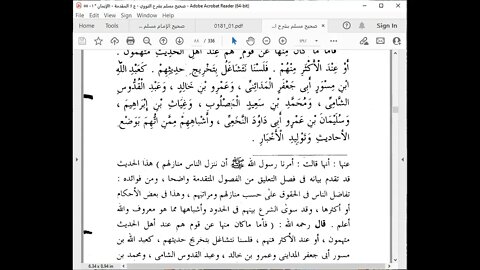 صحيح مسلم بشرح النووي - ج ١ المقدمة - الإيمان ١ - ٩٥ - Adobe Acrobat Reader (64-bit)
صحيح الإمام مسلم ...
0181_01.pdf
صحيح مسلم بشرح ا...
/ 336
فأما ما كان منها عن قوم هم عند أهل الحديث متهمون .
أَوْ عِنْدَ الْأَكْثَرِ مِنْهُمْ . فَلَسْنَا نَتَشَاغَلُ بِتَخْرِيجِ حَدِيثِهِمْ . كَعَبْدِ اللهِ
ابْنِ مِسْوَرٍ أَبِي جَعْفَرٍ الْمَدَائِنِيِّ . وَعَمْرِو بْنِ خَالِدٍ ، وَعَبْدِ الْقُدُّوسِ
الشَّامِيِّ ، وَمُحَمَّدِ بْنِ سَعِيدٍ الْمَصْلُوبِ ، وَغِيَاثِ بْنِ إِبْرَاهِيمَ ،
وَسُلَيْمَانَ بْنِ عَمْرٍو أَبِي دَاوُدَ النَّخَعِيِّ ، وَأَشْبَاهِهِمْ مِمَّنِ اتُّهِمَ بِوَضْعِ
الْأَحَادِيثِ وَتَوْلِيدِ الْأَخْبَارِ .
عنها : أنها قالت : أمرنا رسول الله ﷺ أن ننزل الناس منازلهم ) هذا الحديث
قد تقدم بيانه في فصل التعليق من الفصول المتقدمة واضحا ، ومن فوائده :
تفاضل الناس في الحقوق على حسب منازلهم ومراتبهم ، وهذا في بعض الأحكام
أو أكثرها ، وقد سوى الشرع بينهم في الحدود وأشباهها مما هو معروف والله
أعلم . قال رحمه الله : ( فأما ماكان منها عن قوم هم عند أهل الحديث
متهمون ، أو عند الأكثر منهم ، فلسنا نتشاغل بتخريج حديثهم ، كعبد الله بن
مسور أبى جعفر المدايني وعمرو بن خالد ، وعبد القدوس الشامى ، ومحمد بن
8.34 x 9.94 in